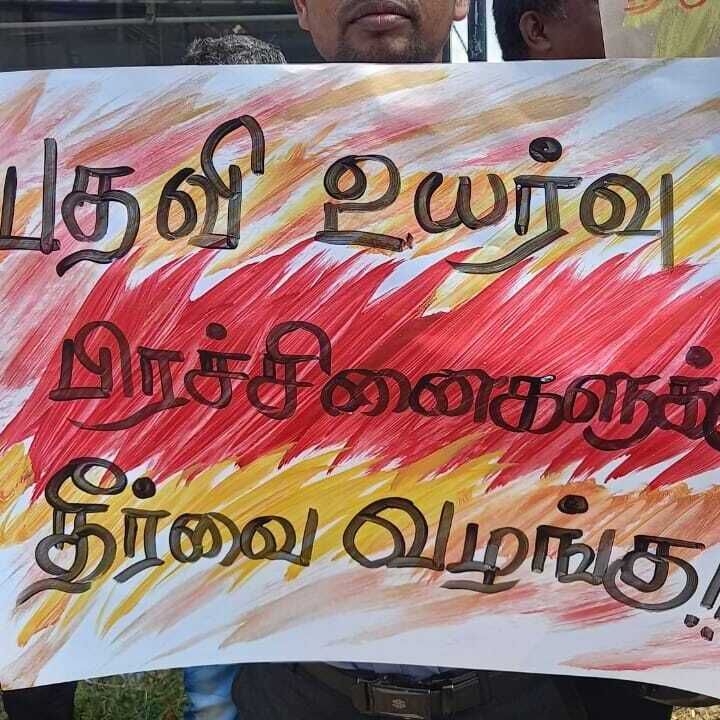 பதவி உயர்வு
பிரச்சினைகளுக்
தீர்வை வழங்கு!!